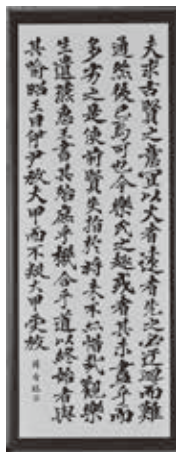 夫求古賢之意宜以大者遠者先之必迂迴而難
通然後已焉可也今樂氏之趣或者其未盡乎而
多劣之是使前賢失指於將来不亦惜哉觀樂
生遺燕惠王書其殆庶乎機合乎道以終始者與
其喻昭王曰伊尹放大甲而不疑大甲受放